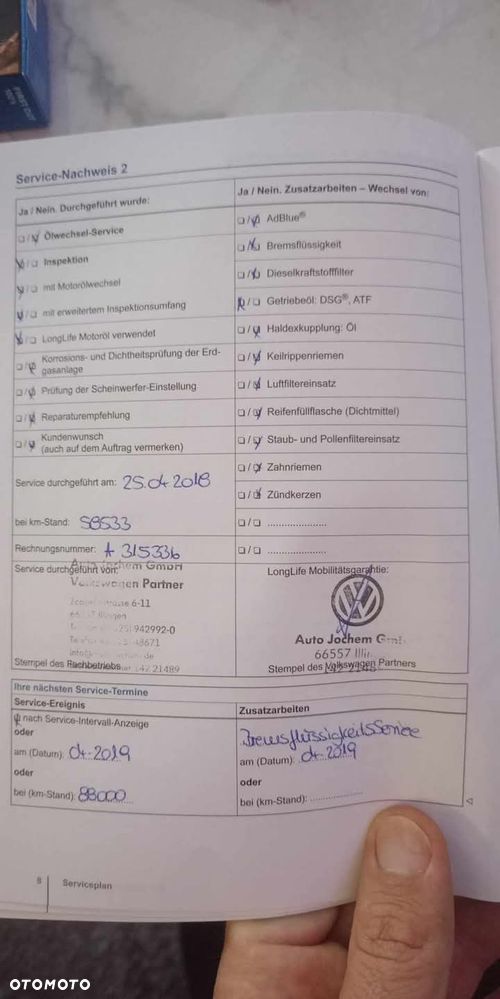 Service-Nachweis 2
Ja / Nein. Durchgeführt wurde:
□/□ Ölwechsel-Service
□/□ Inspektion
□/□ mit Motorölwechsel
□/□ mit erweitertem Inspektionsumfang
□/□ LongLife Motoröl verwendet
□/□ Korrosions- und Dichtheitsprüfung der Erd-
gasanlage
□/□ Prüfung der Scheinwerfer-Einstellung
□/□ Reparaturempfehlung
□/□ Kundenwunsch
(auch auf dem Auftrag vermerken)
Service durchgeführt am: 25.04.2018
bei km-Stand: 58533
Rechnungsnummer: A 315336
Service durchgeführt von:
Auto Jochem GmbH
Volkswagen Partner
6-11
942992-0
48671
21489
Stempel des Fachbetriebs
Ja / Nein. Zusatzarbeiten – Wechsel von:
□/□ AdBlue®
□/□ Bremsflüssigkeit
□/□ Dieselkraftstofffilter
□/□ Getriebeöl: DSG®, ATF
□/□ Haldexkupplung: Öl
□/□ Keilrippenriemen
□/□ Luftfiltereinsatz
□/□ Reifenfüllflasche (Dichtmittel)
□/□ Staub- und Pollenfiltereinsatz
□/□ Zahnriemen
□/□ Zündkerzen
□/□ .....................
□/□ .....................
LongLife Mobilitätsgarantie:
Auto Jochem GmbH
66557
Stempel des Volkswagen Partners
Ihre nächsten Service-Termine
Service-Ereignis
nach Service-Intervall-Anzeige
oder
am (Datum): 04.2019
oder
bei (km-Stand): 88000
Zusatzarbeiten
Bremsflüssigkeitsservice
am (Datum): 04.2019
oder
bei (km-Stand): ...................
8 Serviceplan
OTOMOTO